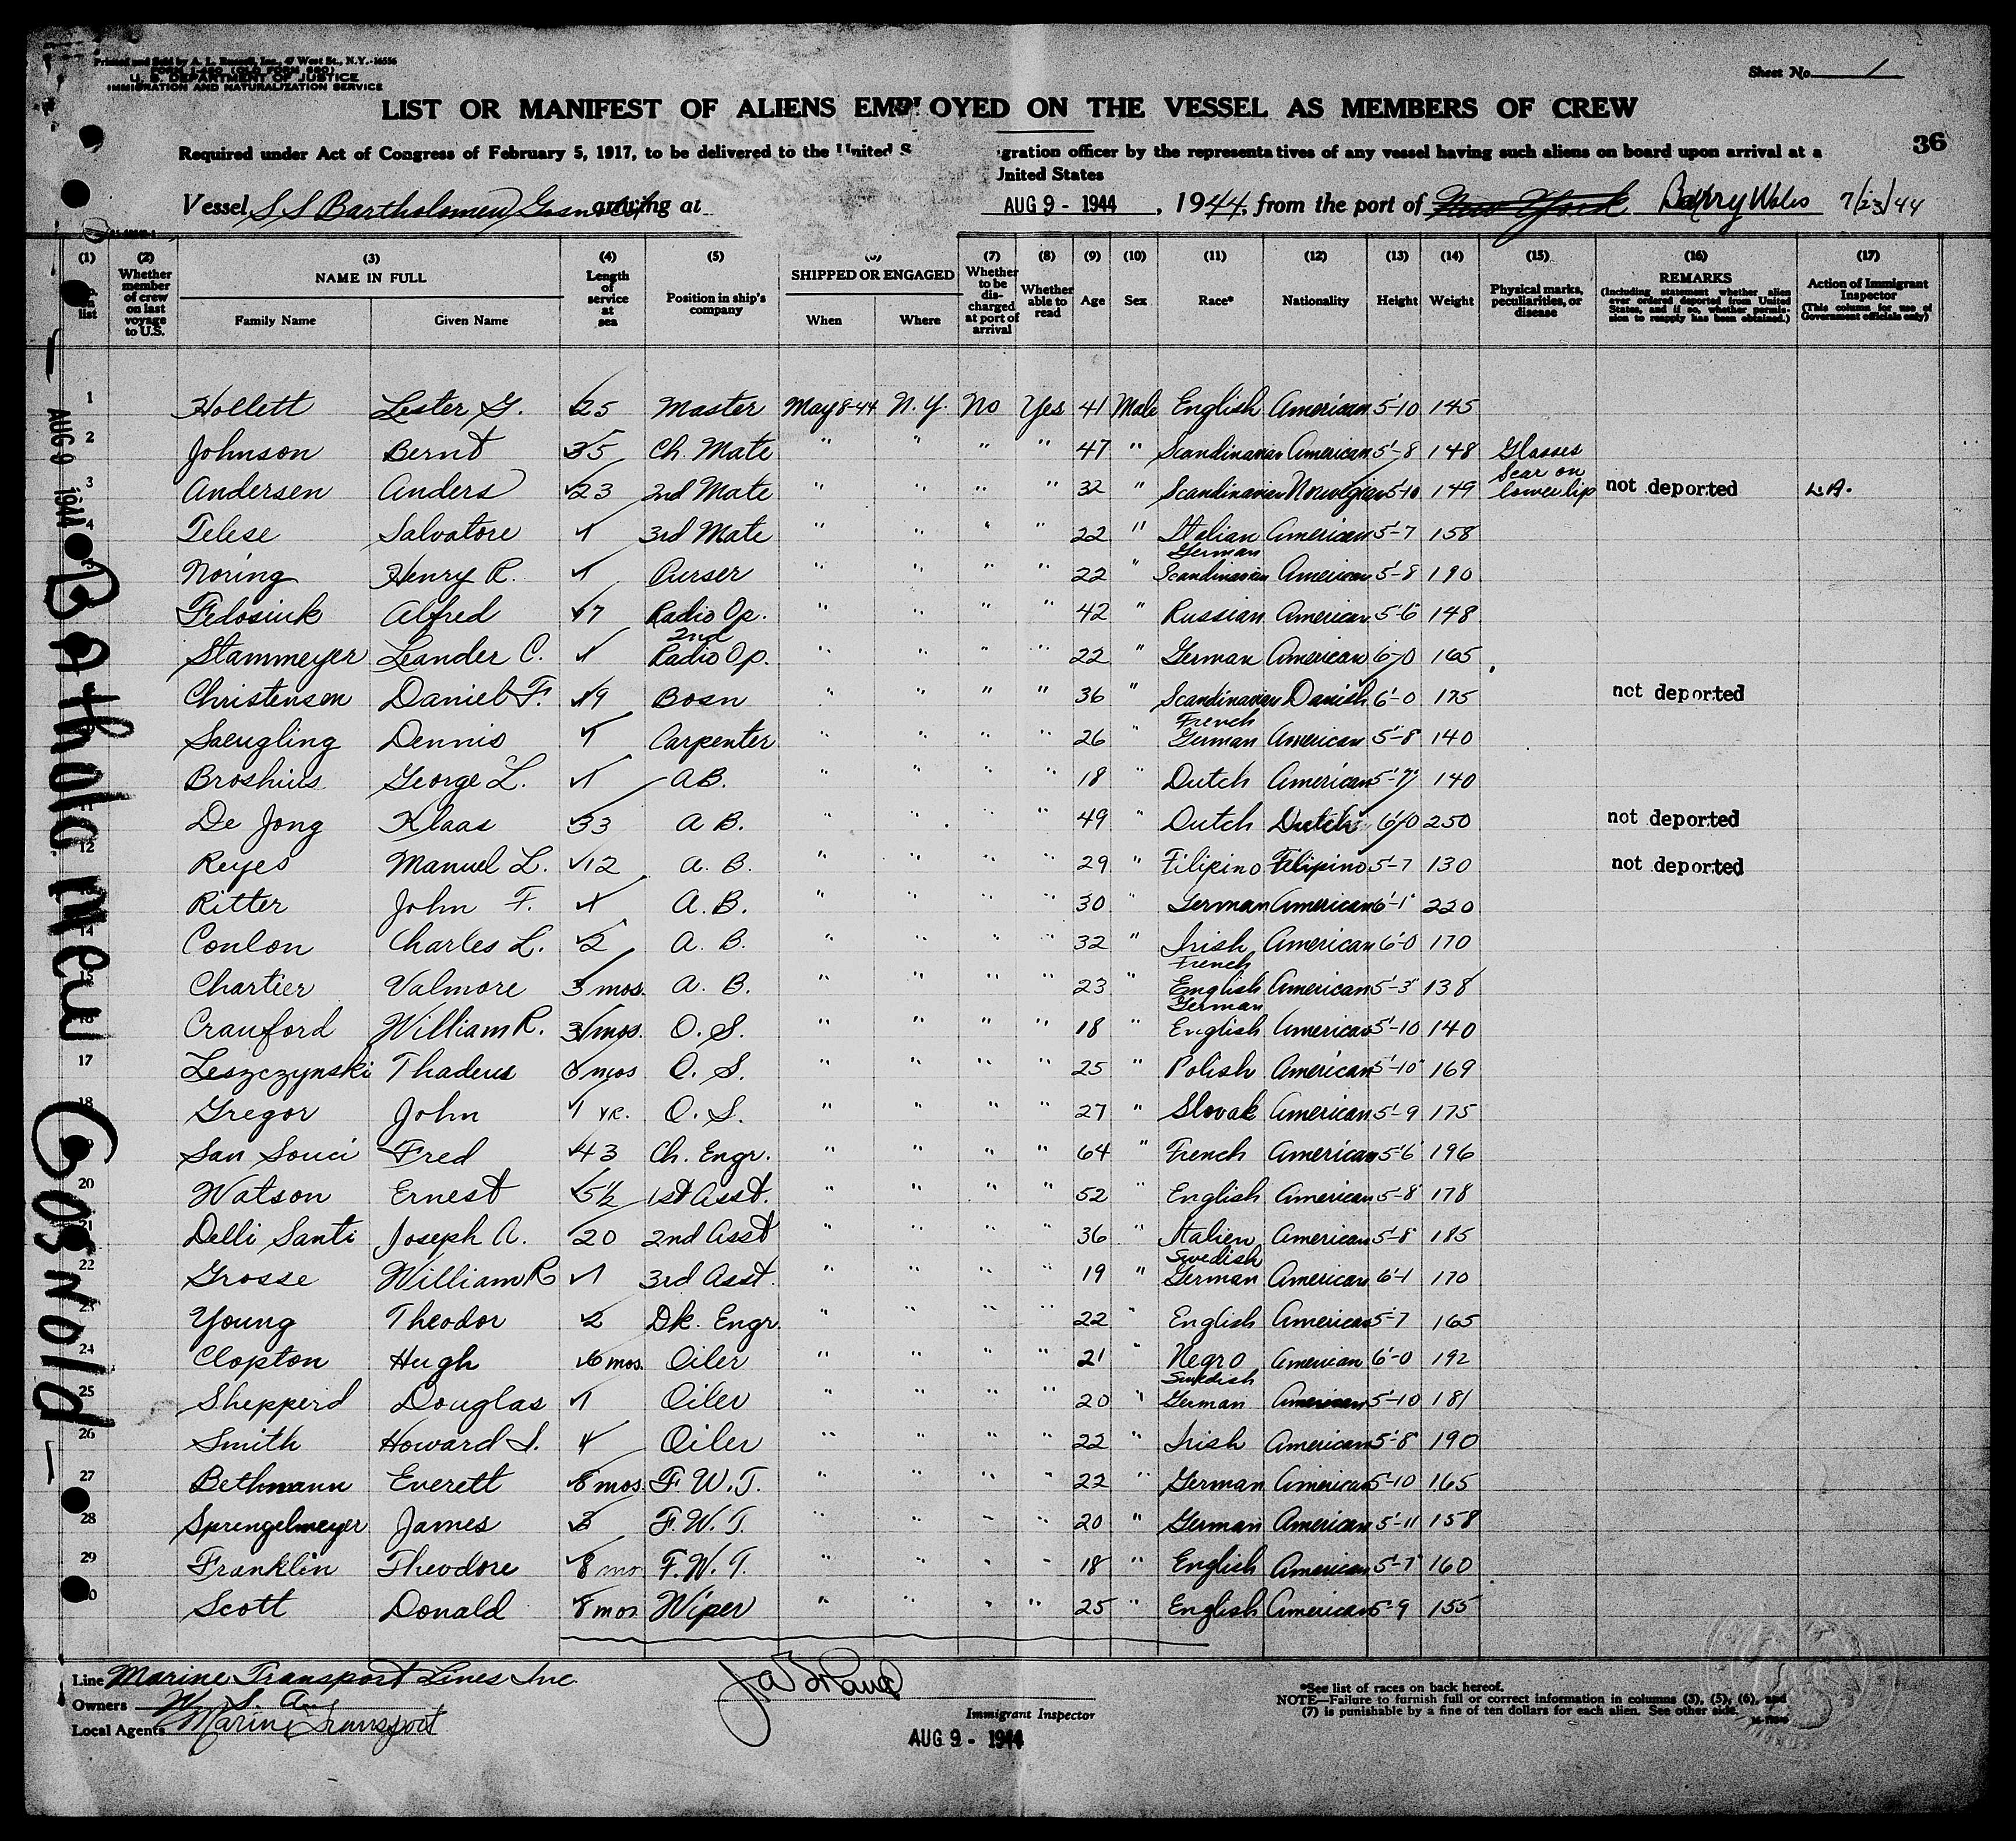 Printed and Sold by A. L. Russell, Inc., 47 West St., N.Y.-16556
U. S. DEPARTMENT OF JUSTICE
IMMIGRATION AND NATURALIZATION SERVICE
Sheet No. 1
LIST OR MANIFEST OF ALIENS EMPLOYED ON THE VESSEL AS MEMBERS OF CREW
36
Required under Act of Congress of February 5, 1917, to be delivered to the United S gration officer by the representatives of any vessel having such aliens on board upon arrival at a
United States
Vessel S S Bartholomew Gosnold arriving at AUG 9 - 1944, 1944, from the port of New York Barry Wales 7/23/44
(1) (2) (3) (4) (5) (6) (7) (8) (9) (10) (11) (12) (13) (14) (15) (16) (17)
list Whether member of crew on last voyage to U.S. NAME IN FULL Family Name Given Name Length of service at sea Position in ship's company SHIPPED OR ENGAGED When Where Whether to be discharged at port of arrival Whether able to read Age Sex Race* Nationality Height Weight Physical marks, peculiarities, or disease REMARKS (Including statement whether alien ever ordered deported from United States, and if so, whether permission to reapply has been obtained.) Action of Immigrant Inspector (This column for use of Government officials only)
1 Hollett Lester G. 25 Master May 8-44 N.Y. No Yes 41 Male English American 5-10 145
2 Johnson Bernt 35 Ch. Mate " " " " 47 " Scandinavian American 5'-8 148 Glasses
3 Andersen Anders 23 2nd Mate " " " " 32 " Scandinavian Norwegian 5-10 149 Scar on lower lip not deported L.A.
4 Telese Salvatore 1 3rd Mate " " " " 22 " Italian American 5'-7 158
Noring Henry R. 1 Purser " " " " 22 " German Scandinavian American 5'-8 190
Fedosiuk Alfred 7 Radio Op. " " " " 42 " Russian American 5'-6 148
Stammeyer Leander C. 1 2nd Radio Op. " " " " 22 " German American 6-0 165
Christensen Daniel F. 19 Bosn " " " " 36 " Scandinavian Danish 6'-0 175 not deported
Saeugling Dennis 1 Carpenter " " " " 26 " French German American 5'-8 140
Broshius George L. 1 AB. " " " " 18 " Dutch American 5'-7 140
11 De Jong Klaas 33 A B. " " " " 49 " Dutch Dutch 6/0 250 not deported
12 Reyes Manuel L. 12 A. B. " " " " 29 " Filipino Filipino 5'-7 130 not deported
Ritter John F. 1 A. B. " " " " 30 " German American 6'-1" 220
14 Conlon Charles L. 2 A. B. " " " " 32 " Irish American 6'-0 170
15 Chartier Valmore 3 mos. A. B. " " " " 23 " French English American 5'-3" 138
16 Crauford William R. 3 mos. O. S. " " " " 18 " German English American 5'-10 140
17 Leszczynski Thadeus 6 mos O. S. " " " " 25 " Polish American 5'-10" 169
18 Gregor John 1 YR. O. S. " " " " 27 " Slovak American 5'-9 175
San Souci Fred 43 Ch. Engr. " " " " 64 " French American 5'6 196
20 Watson Ernest 5½ 1st Asst. " " " " 52 " English American 5-8" 178
21 Delli Santi Joseph A. 20 2nd Asst " " " " 36 " Italien American 5'-8" 185
22 Grosse William R 1 3rd Asst. " " " " 19 " Swedish German American 6'-1 170
23 Young Theodor 2 Dk. Engr. " " " " 22 " English American 5'-7 165
24 Clopton Hugh 6 mos. Oiler " " " " 21 " Negro American 6'-0 192
25 Shepperd Douglas 1 Oiler " " " " 20 " Swedish German American 5'-10 181
26 Smith Howard 4 Oiler " " " " 22 " Irish American 5'-8" 190
27 Bethmann Everett 8 mos. F. W. T. " " " " 22 " German American 5'-10 165
28 Sprengelmeyer James 3 F. W. T. " " " " 20 " German American 5'-11 158
29 Franklin Theodore 8 mo F. W. T. " " " " 18 " English American 5'-7" 160
Scott Donald 8 mos. Wiper " " " " 25 " English American 5-9 155
Line Marine Transport Lines Inc
Owners W. S. A.
Local Agents Marine Transport
Immigrant Inspector
AUG 9 - 1944
*See list of races on back hereof.
NOTE—Failure to furnish full or correct information in columns (3), (5), (6), and
(7) is punishable by a fine of ten dollars for each alien. See other side.
AUG 9 1944
Batholomew Gosnold